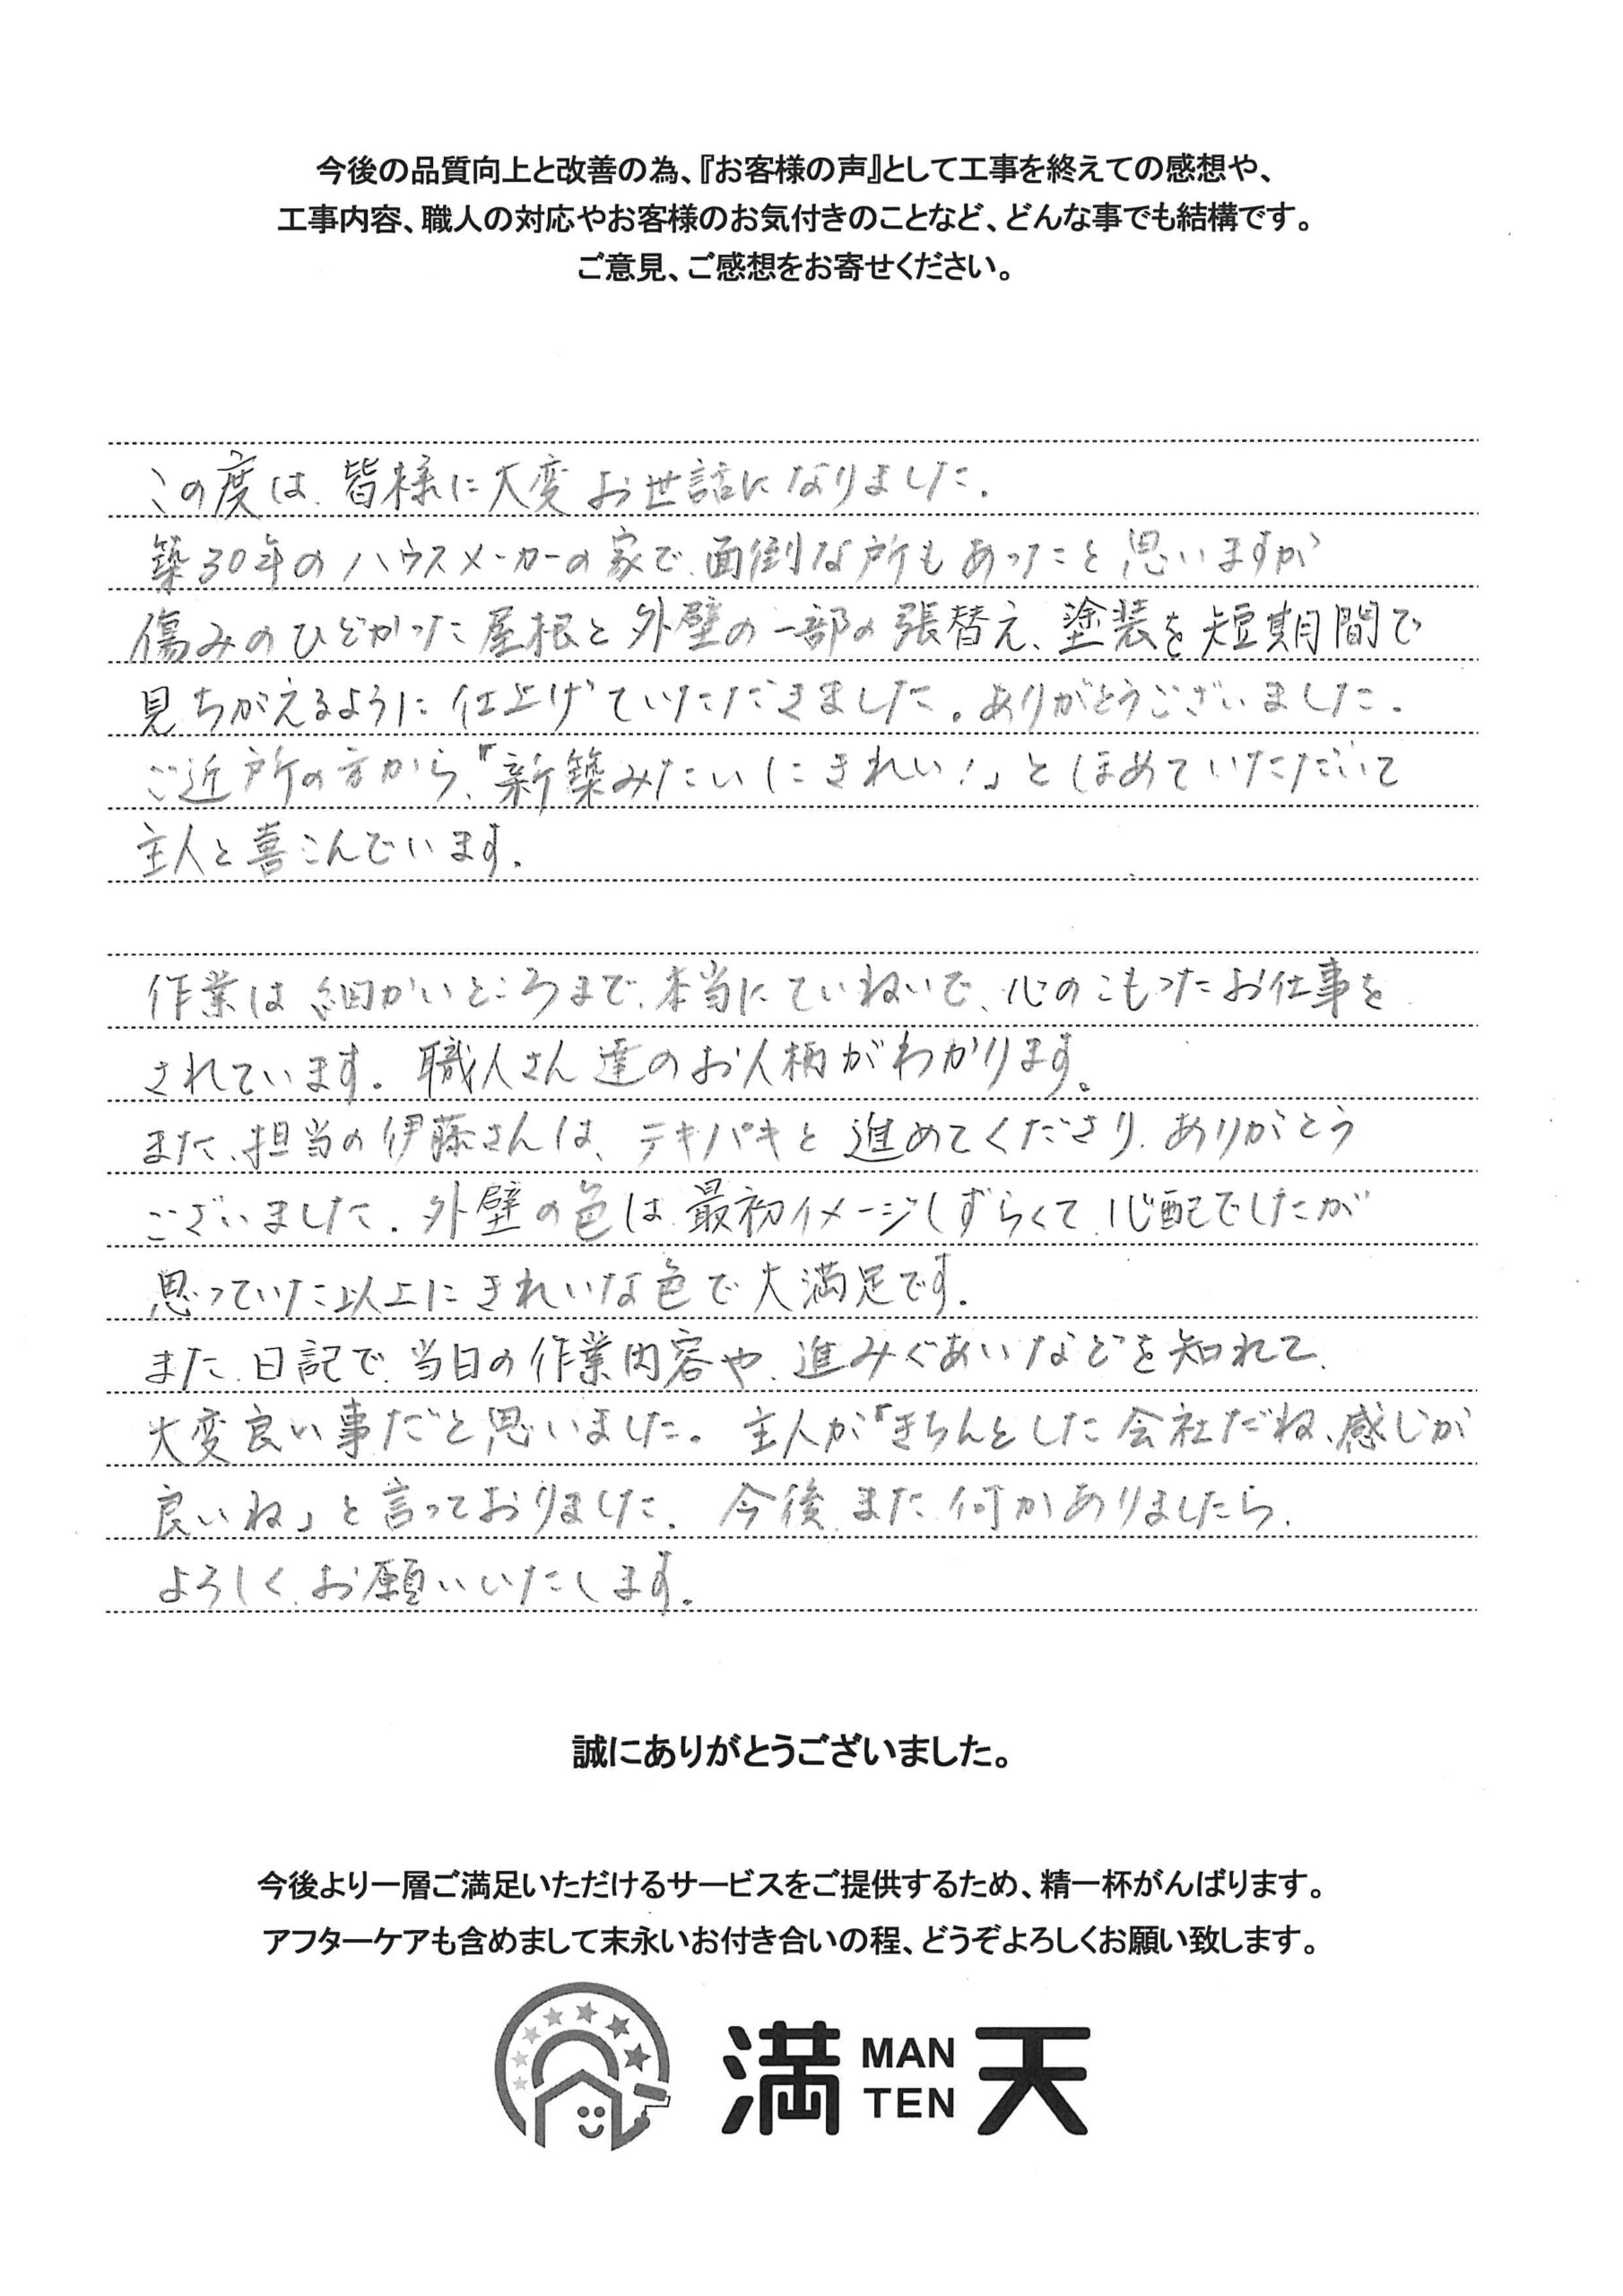 今後の品質向上と改善の為、『お客様の声』として工事を終えての感想や、
工事内容、職人の対応やお客様のお気付きのことなど、どんな事でも結構です。
ご意見、ご感想をお寄せください。
この度は、皆様に大変お世話になりました。
築30年のハウスメーカーの家で、面倒な所もあったこと思いますが
傷みのひどかった屋根と外壁の一部の張替え、塗装を短期間で
見ちがえるように仕上げていただきました。ありがとうございました。
ご近所の方から、『新築みたいにきれい!』とほめていただいて
主人と喜こんでいます。
作業は細かいところまで、本当にていねいで、心のこもったお仕事を
されています。職人さん達のお人柄がわかります。
また、担当の伊藤さんは、テキパキと進めてくださり、ありがとう
ございました。外壁の色は最初イメージしずらくて、心配でしたが
思っていた以上にきれいな色で大満足です。
また、日記で、当日の作業内容や、進みぐあいなどを知れて、
大変良い事だと思いました。主人が『きちんとした会社だね、感じが
良いね」と言っておりました。今後、また、何かありましたら、
よろしく、お願いいたします。
誠にありがとうございました。
今後より一層ご満足いただけるサービスをご提供するため、精一杯がんばります。
アフターケアも含めまして末永いお付き合いの程、どうぞよろしくお願い致します。
満 MAN TEN 天